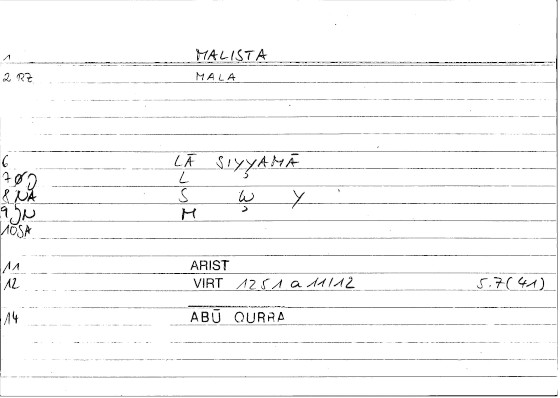 1 MALISTA
2 RZ MALA
6 LĀ SIYYAMĀ
7 ØJ L
8 NA S Ẉ Y
9 JN M
10 SA
11 ARIST
12 VIRT 1251 a 11/12 5.7(41)
14 ABŪ QURRA